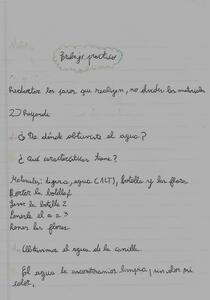 Trabajo practico
Redactar los pasos que realizen, no olvidar los materiales
2) Responde
¿De dónde obtuviste el agua?
¿Qué caracteristicas tiene?
Materiales: tigera, agua (1LT), botella y las flores
Cortar la botella
la botella 2
Ponerle el a
Poner las flores
Obtuvimos el agua de la canilla
El agua la encontramos limpia, sin olor ni
color.